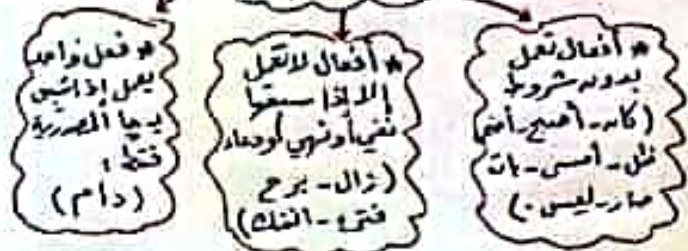 * أفعال تعمل
بدون شروط
(كان - أصبح - أضحى
ظل - أمسى - بات
صار - ليس.)
* أفعال لا تعمل
إلا إذا سبقها
نفي أو نهي أو دعاء
(زال - برح
فتئ - انفك)
* فعل واحد
يعمل إذا سبق
بـ ما المصدرية
فقط:
(دام)